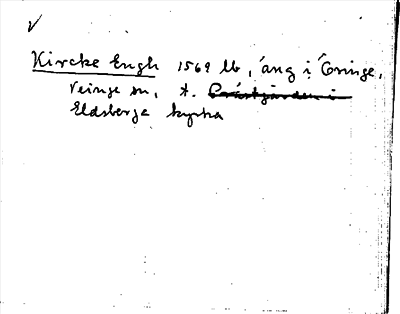 V
Kircke Engh 1569 lb, äng i Göinge,
Veinge sn, t. Prästgården i
Eldsberga kyrka